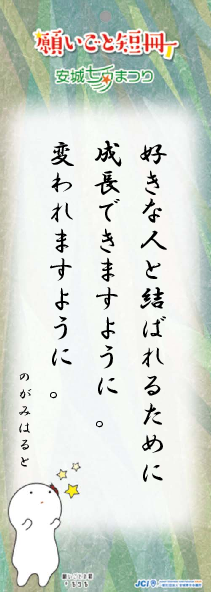 願いごと短冊
安城七夕まつり
好きな人と結ばれるために
成長できますように。
変われますように。
のがみはると
JCI